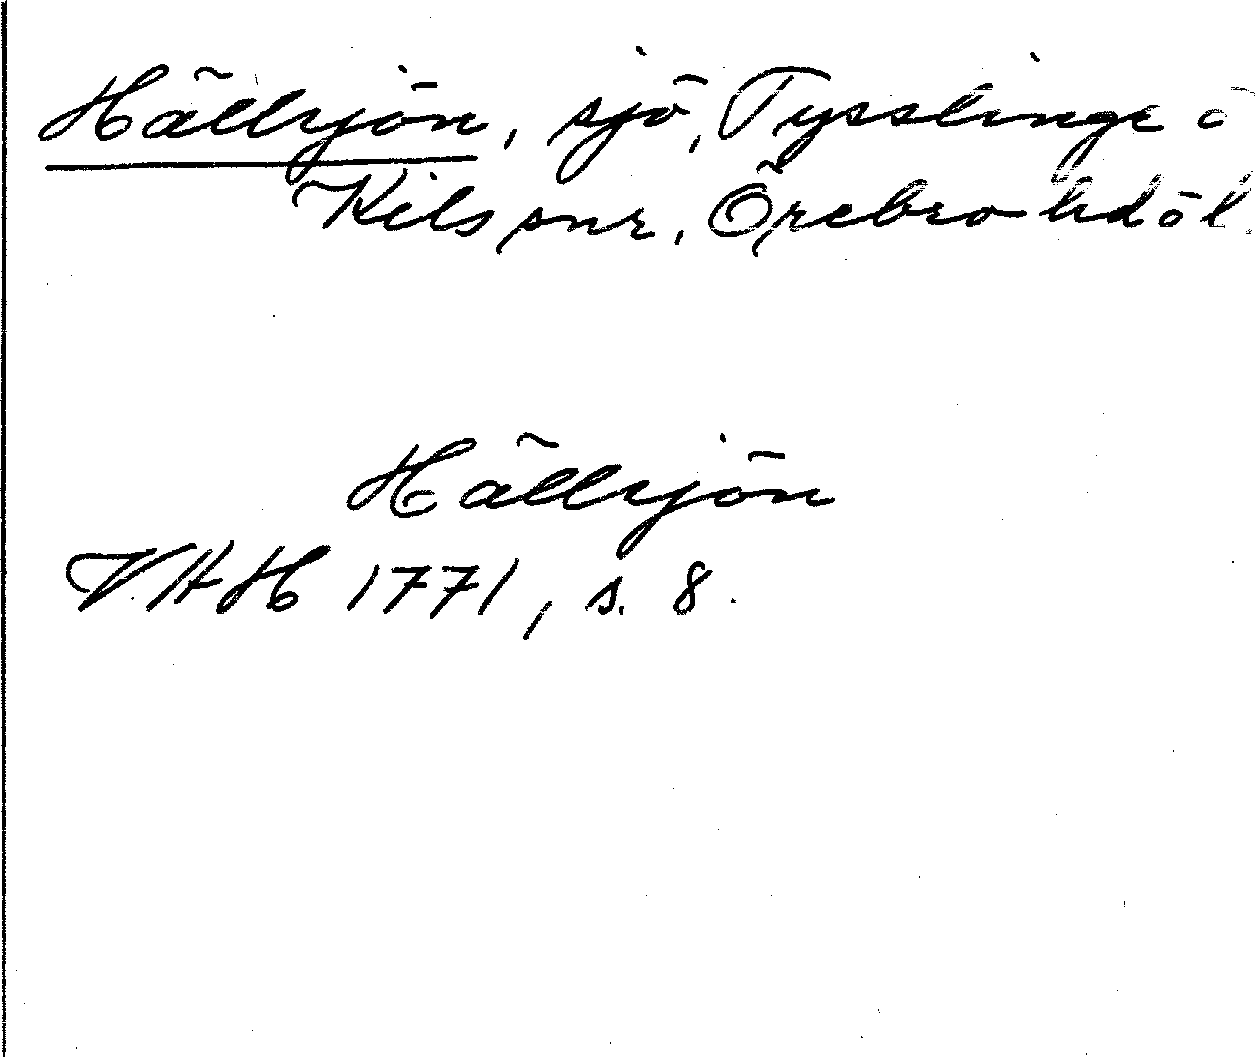 Hällsjön, sjö, Tysslinge o
Kils snr, Örebro hd ö l.
Hällsjön
VHH 1771, s. 8.